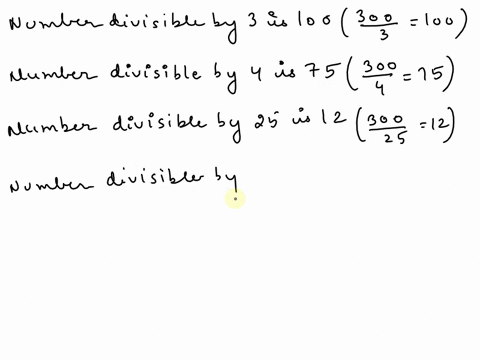 Number divisible by 3 is 100 (300/3 = 100)
Number divisible by 4 is 75 (300/4 = 75)
Number divisible by 25 is 12 (300/25 = 12)
Number divisible by